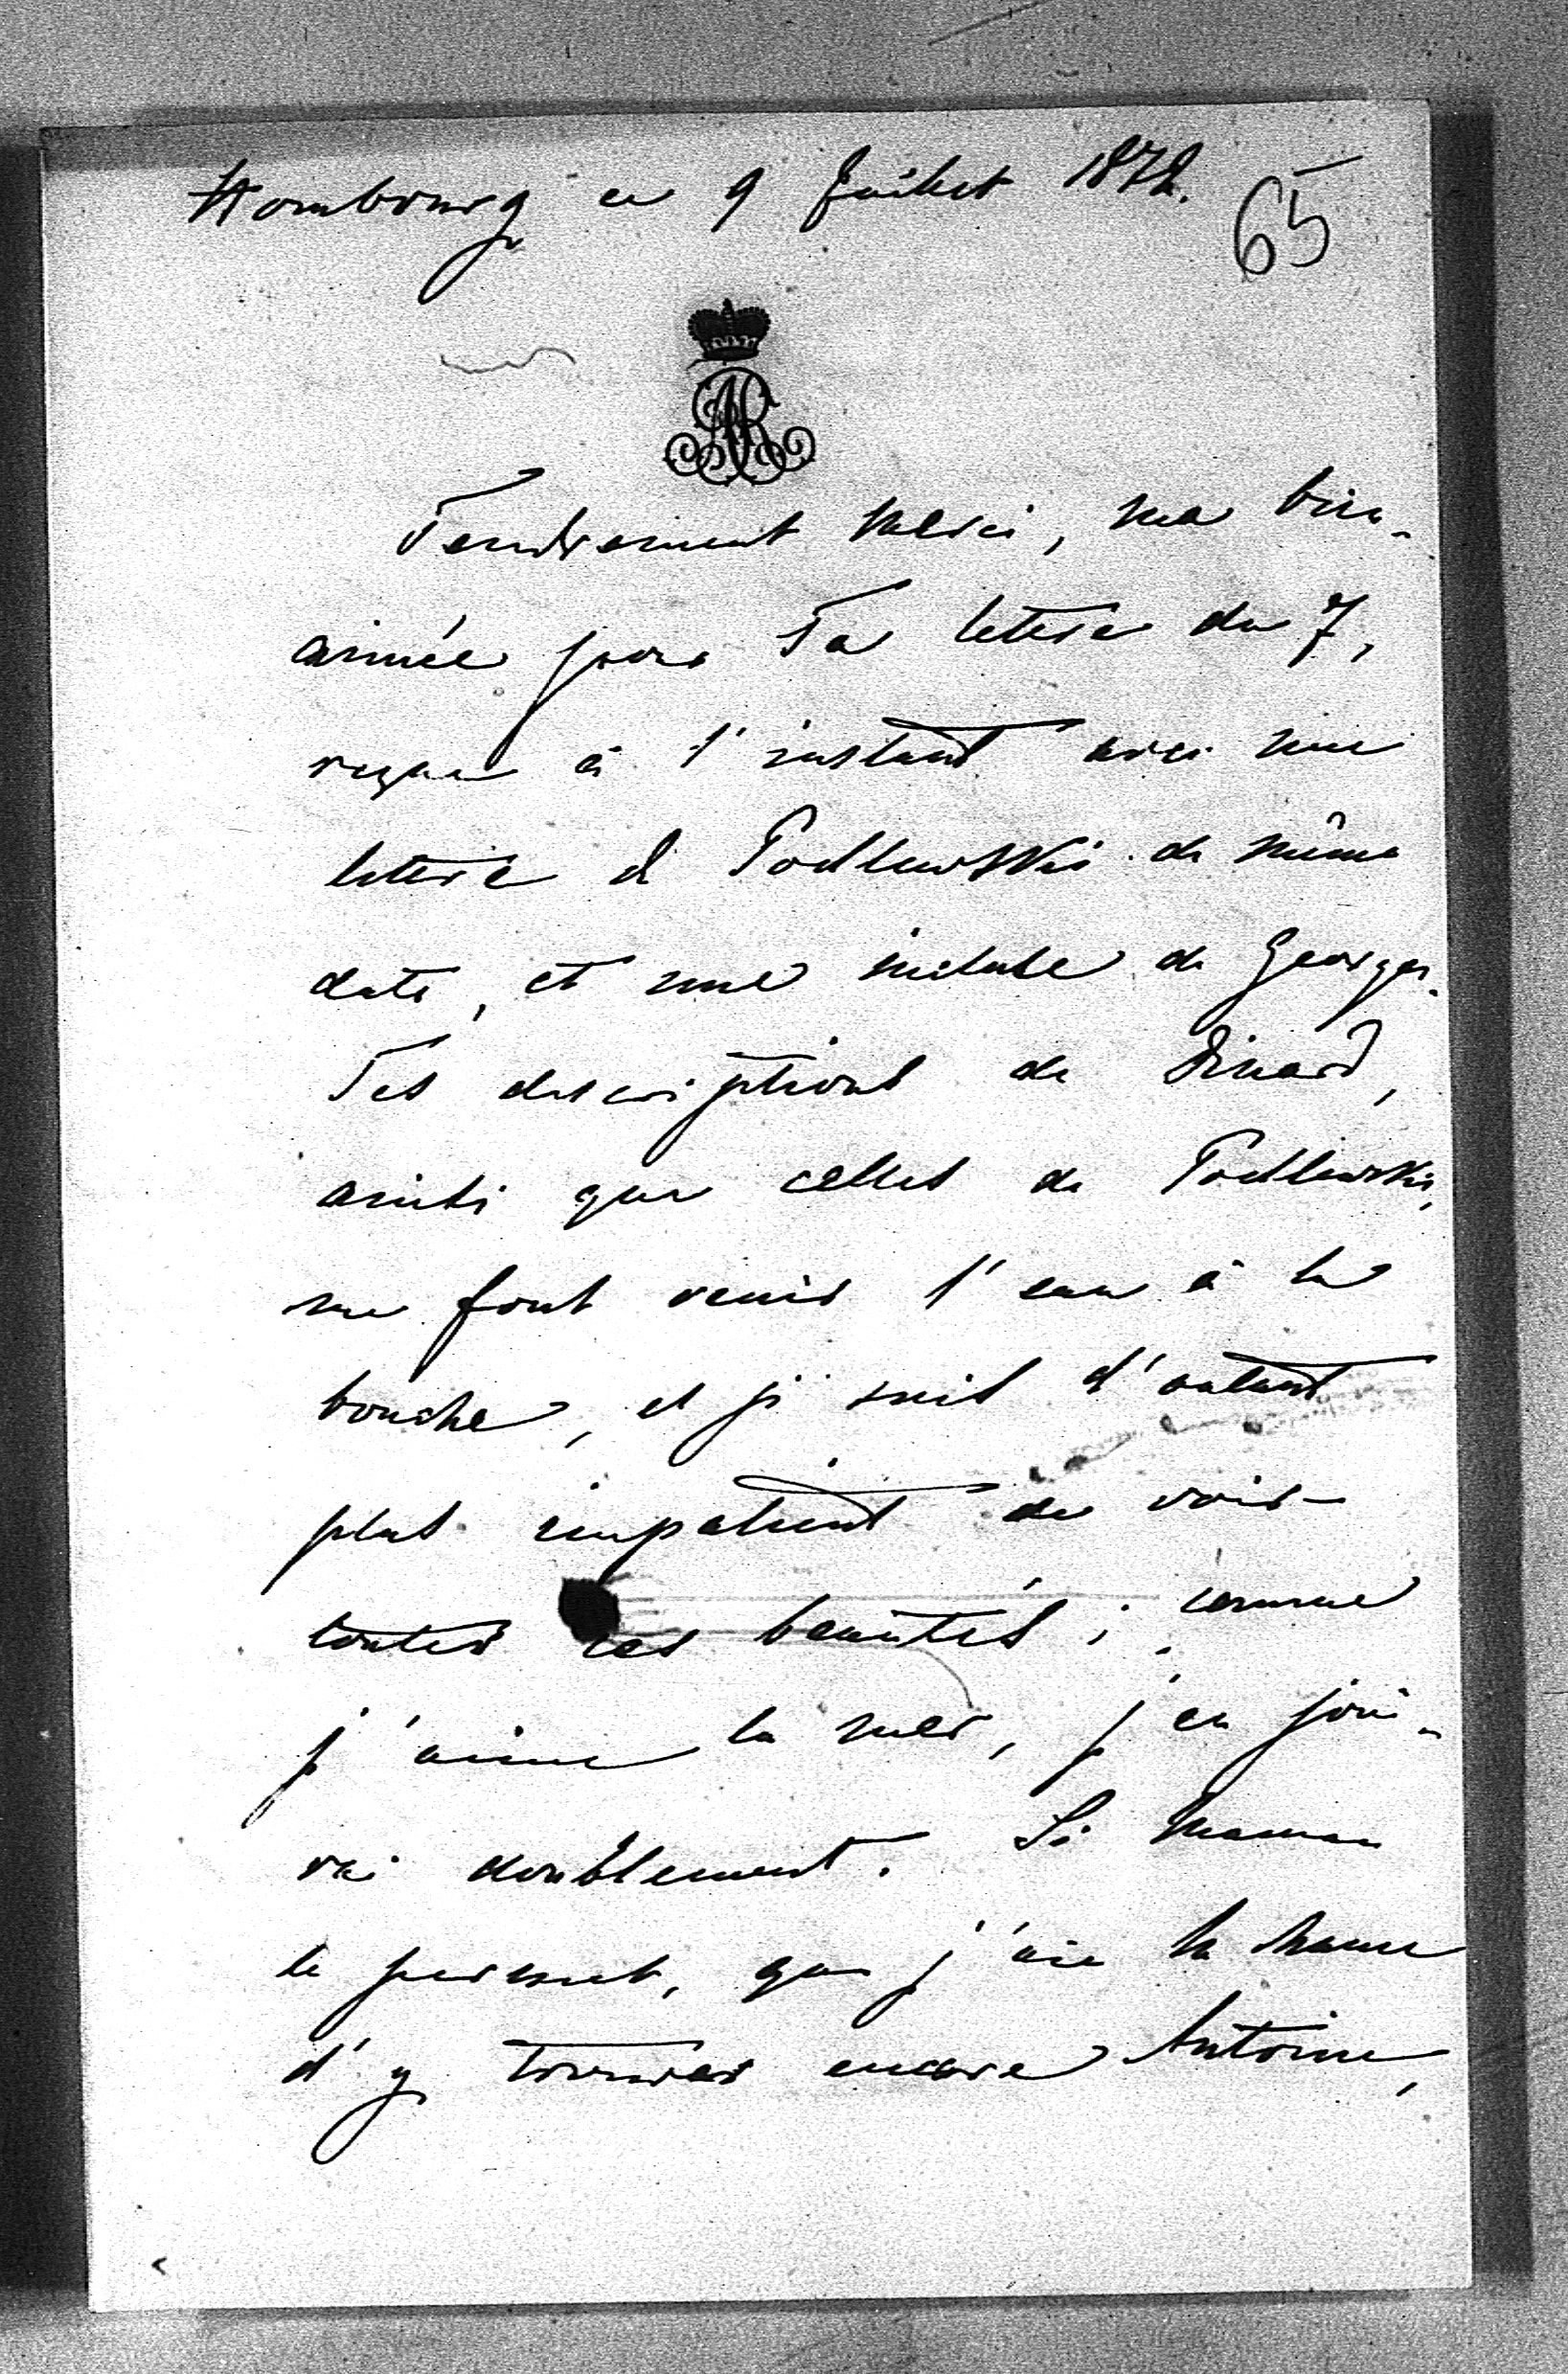 Hombourg ce 9 Juillet 1872.
65
AR
Tendrement merci, ma bien-
aimée pour Ta lettre du 7,
reçue à l'instant avec une
lettre d Podlewski de même
date, et une incluse de Georges.
Tes descriptions de Dinard,
ainsi que celles de Podlewski,
me font venir l'eau à la
bouche, et je suis d'autant
plus impatient de voir
toutes ces beautés; comme
j'aime la mer, j'en joui-
rai doublement. Si Maman
le permet, que j'aie la chance
d'y trouver encore Antoine,